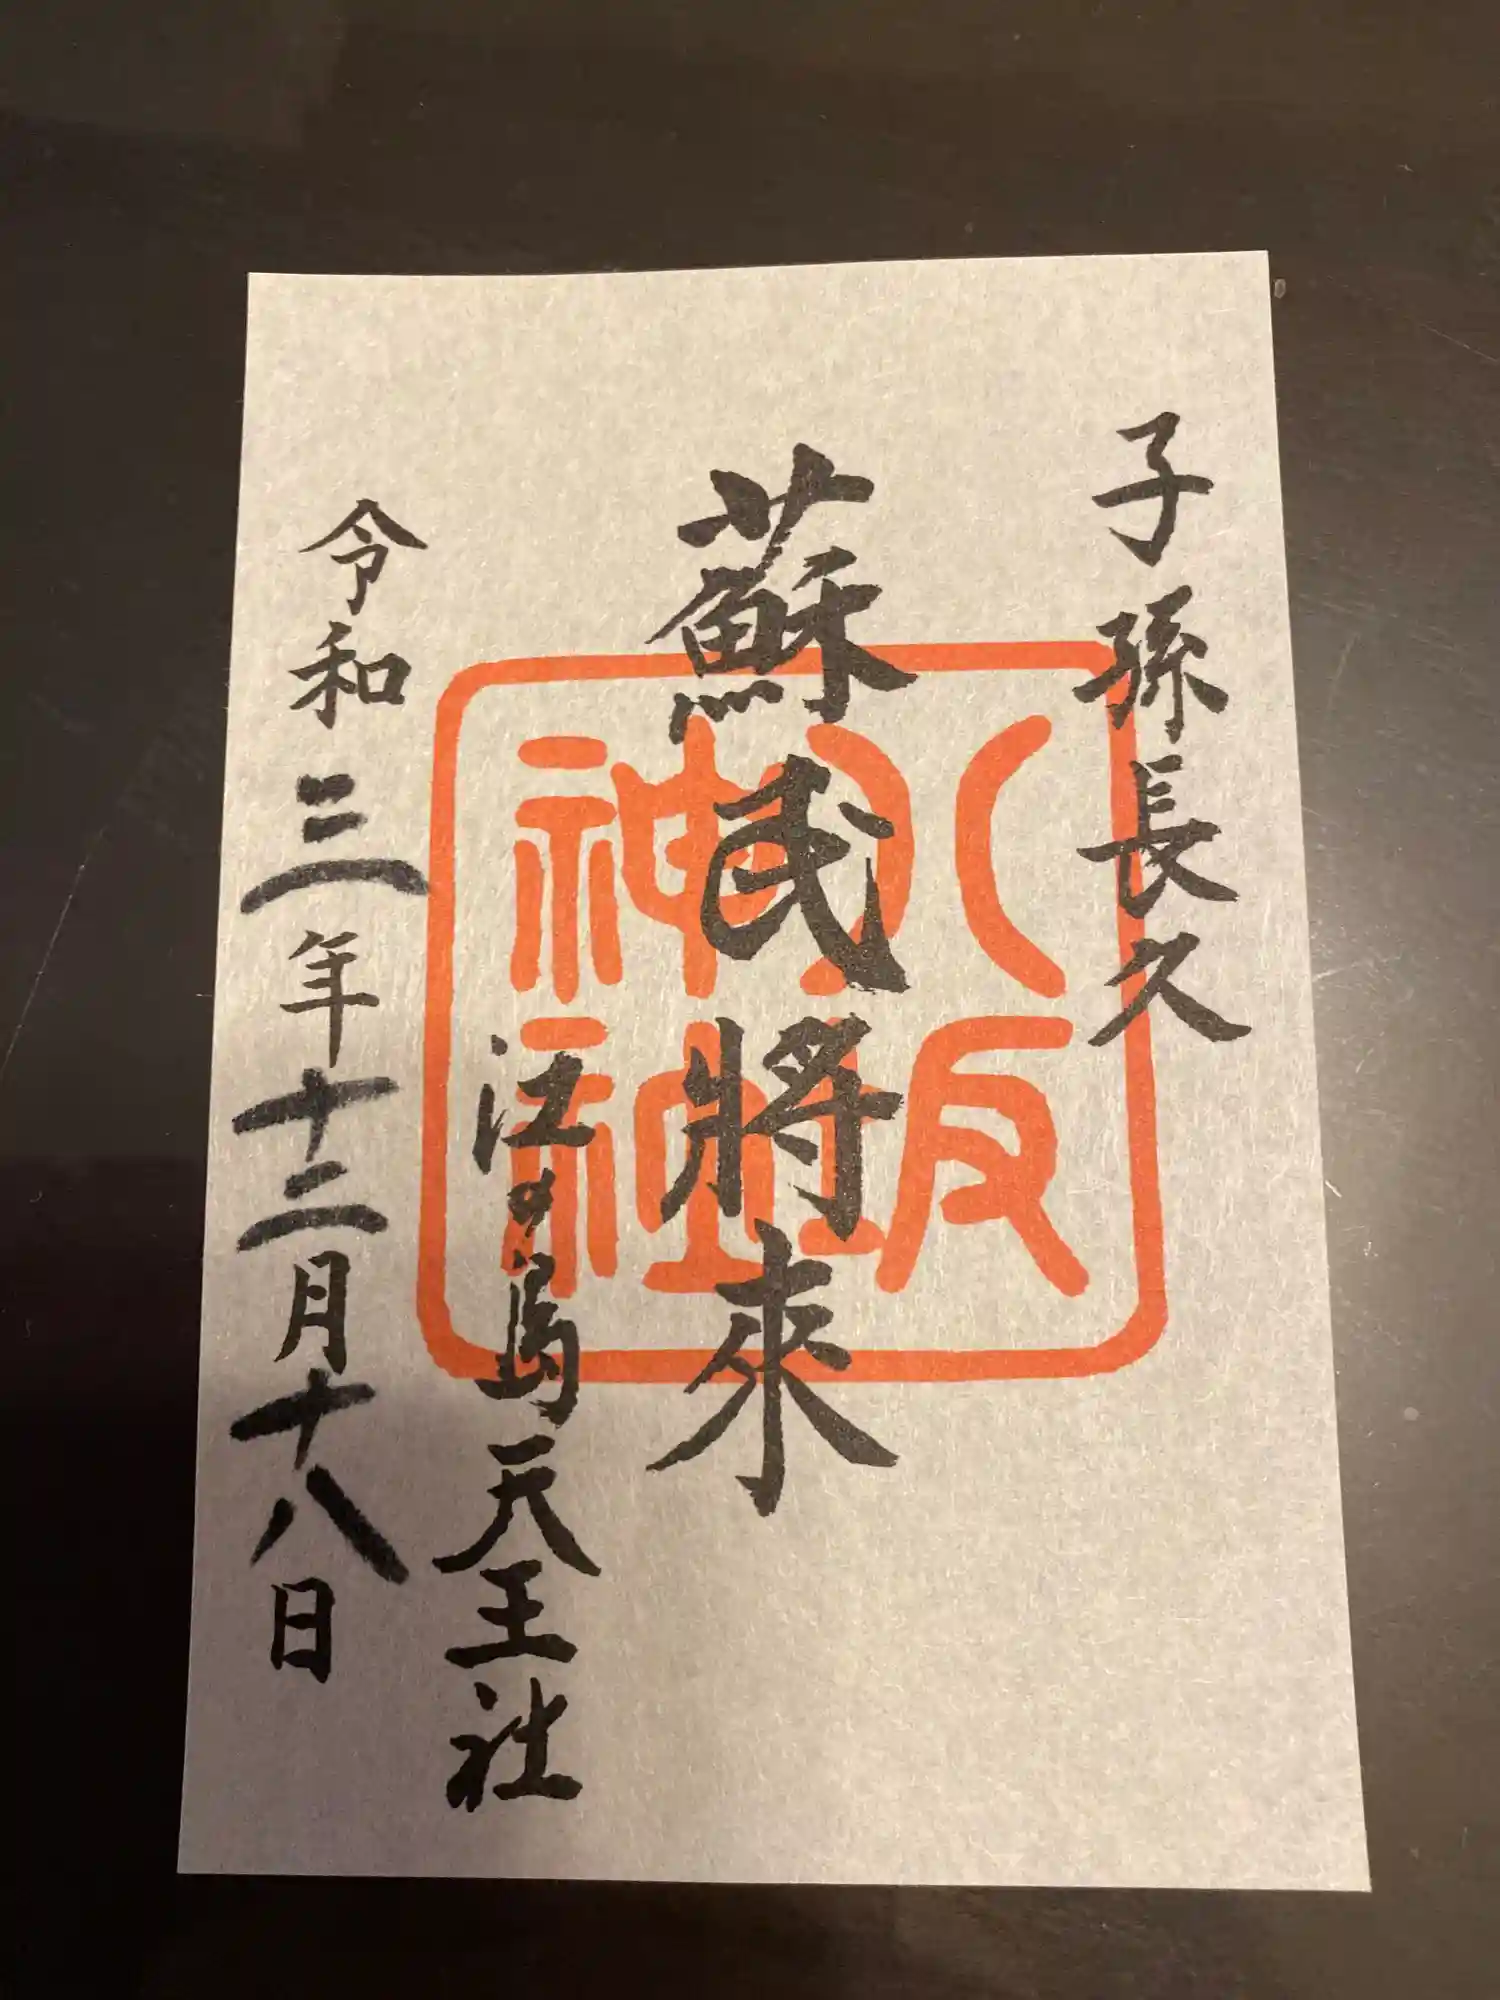 子孫長久
蘇民將來
八坂
神社
江の島天王社
令和三年十二月十八日